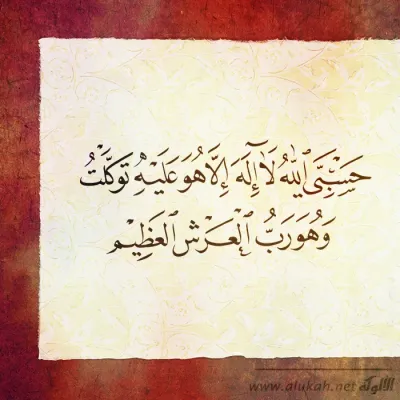 حَسْبِيَ ٱللَّهُ لَآ إِلَٰهَ إِلَّا هُوَ عَلَيْهِ تَوَكَّلْتُ
وَهُوَ رَبُّ ٱلْعَرْشِ ٱلْعَظِيمِ
www.alukah.net الألوكة